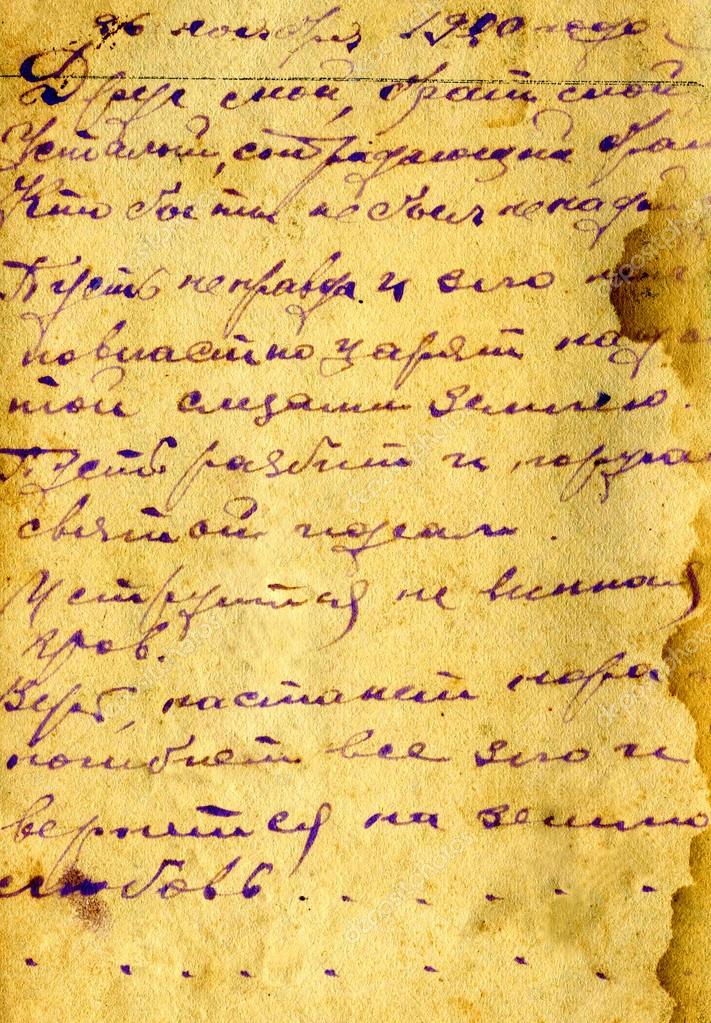 26 ноября 19 0 года
Друг мой, брат мой
Усталый, сотрадающий бра
Кто бы ты не был не пада
Пусть неправда и зло пол
новластно царят над о
той слезами землею.
Пусть разбит и поруга
святой идеал.
И струится не винная
кров.
Верь, настанет пора и
погибнет все зло и
вернется на землю
любовь . . . . . .
. . . . . . .